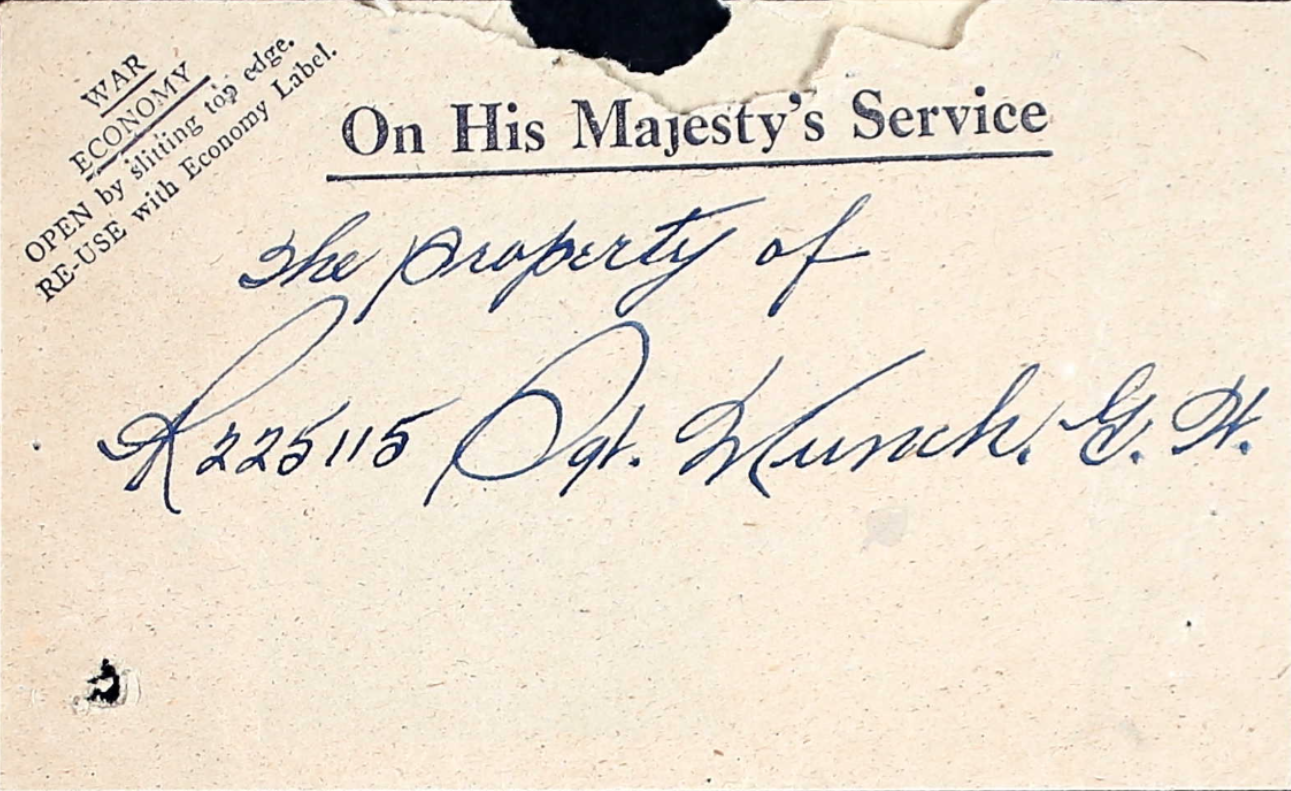 WAR
ECONOMY
OPEN by slitting top edge.
RE-USE with Economy Label.
On His Majesty's Service
The property of
R225115 Sgt. Munch. G. H.